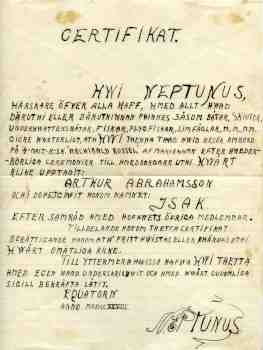 CERTIFIKAT.
HWI NEPTUNUS,
HÄRSKARE ÖFVER ALLA HAFF, HMED ALLT HWAD
DÄRUTHI ELLER DÄRUTHINNAN FHINNES SÅSOM BÅTAR, SKUTOR,
UNDERWATTENSBÅTAR, FISKAR, FLYGFISKAR, SIMFÅGLAR, M.M.M.M.
GIÖRE WETERLIGT, ATH HWI THENNA THAG HWID BESÖK OMBORD
PÅ EFTER HWEDER-
BÖRLIGA CEREMONIER TILL HWÅRT
RIKE UPPTAGIT:
ARTHUR ABRAHAMSSON
OCH DÖPT HONOM NAMNET:
ISAK
EFTER SAMRÅD HMED HOFWETS ÖFRIGA MEDLEMMAR.
TILLDELANDE HONOM THETTA CERTIFIKAT
BERÄTTIGANDE HONOM ATH FRITT HWISTAS ELLER
HWÅRT OMÄTLIGA RIKE.
TILL YTTERMERA HWISSO HAFWA HWI THETTA
HMED EGEN HAND UNDERSKRIFWIT OCH HMED HWÅRT GUDOMLIGA
SIGILL BEKRÄFTA LÅTIT.
EQUATORN
ANNO
NEPTUNUS